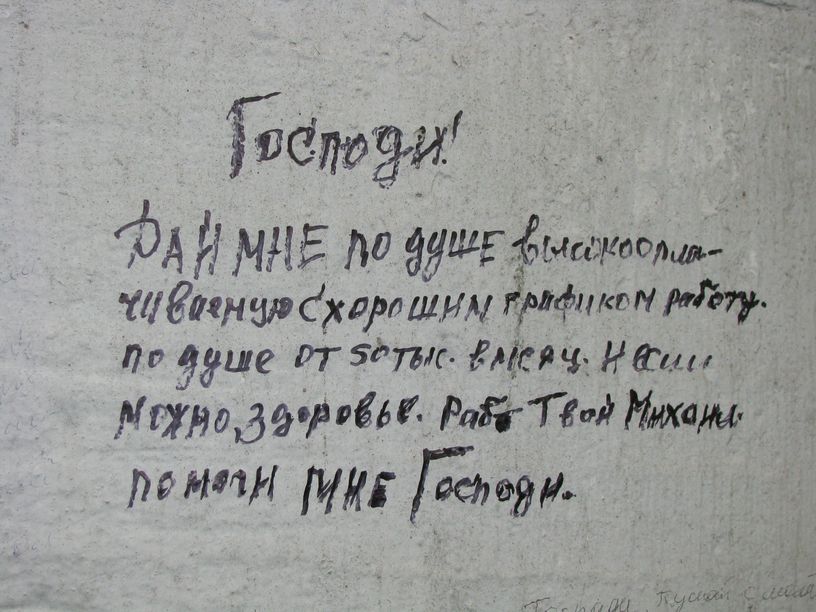 Господи!
ДАЙ МНЕ ПО ДУШЕ высокоопла-
чиваемую с хорошим графиком работу.
по душе от 50тыс. в месяц. И если
можно, здоровье. Раб Твой Михаил.
помоги МНЕ Господи.
Господи,